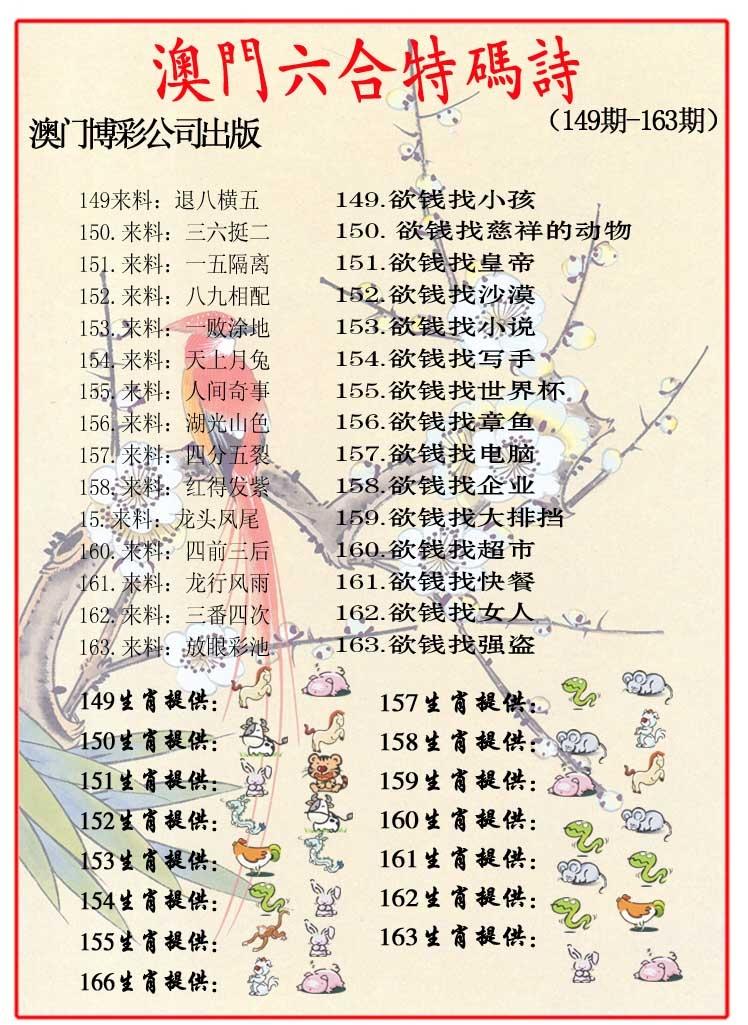 澳門六合特碼詩
澳门博彩公司出版
（149期-163期）
149来料：退八横五 149.欲钱找小孩
150.来料：三六挺二 150. 欲钱找慈祥的动物
151.来料：一五隔离 151.欲钱找皇帝
152.来料：八九相配 152.欲钱找沙漠
153.来料：一败涂地 153.欲钱找小说
154.来料：天上月兔 154.欲钱找写手
155.来料：人间奇事 155.欲钱找世界杯
156.来料：湖光山色 156.欲钱找章鱼
157.来料：四分五裂 157.欲钱找电脑
158.来料：红得发紫 158.欲钱找企业
15.来料：龙头凤尾 159.欲钱找大排挡
160.来料：四前三后 160.欲钱找超市
161.来料：龙行风雨 161.欲钱找快餐
162.来料：三番四次 162.欲钱找女人
163.来料：放眼彩池 163.欲钱找强盗
149生肖提供： 157生肖提供：
150生肖提供： 158生肖提供：
151生肖提供： 159生肖提供：
152生肖提供： 160生肖提供：
153生肖提供： 161生肖提供：
154生肖提供： 162生肖提供：
155生肖提供： 163生肖提供：
166生肖提供：